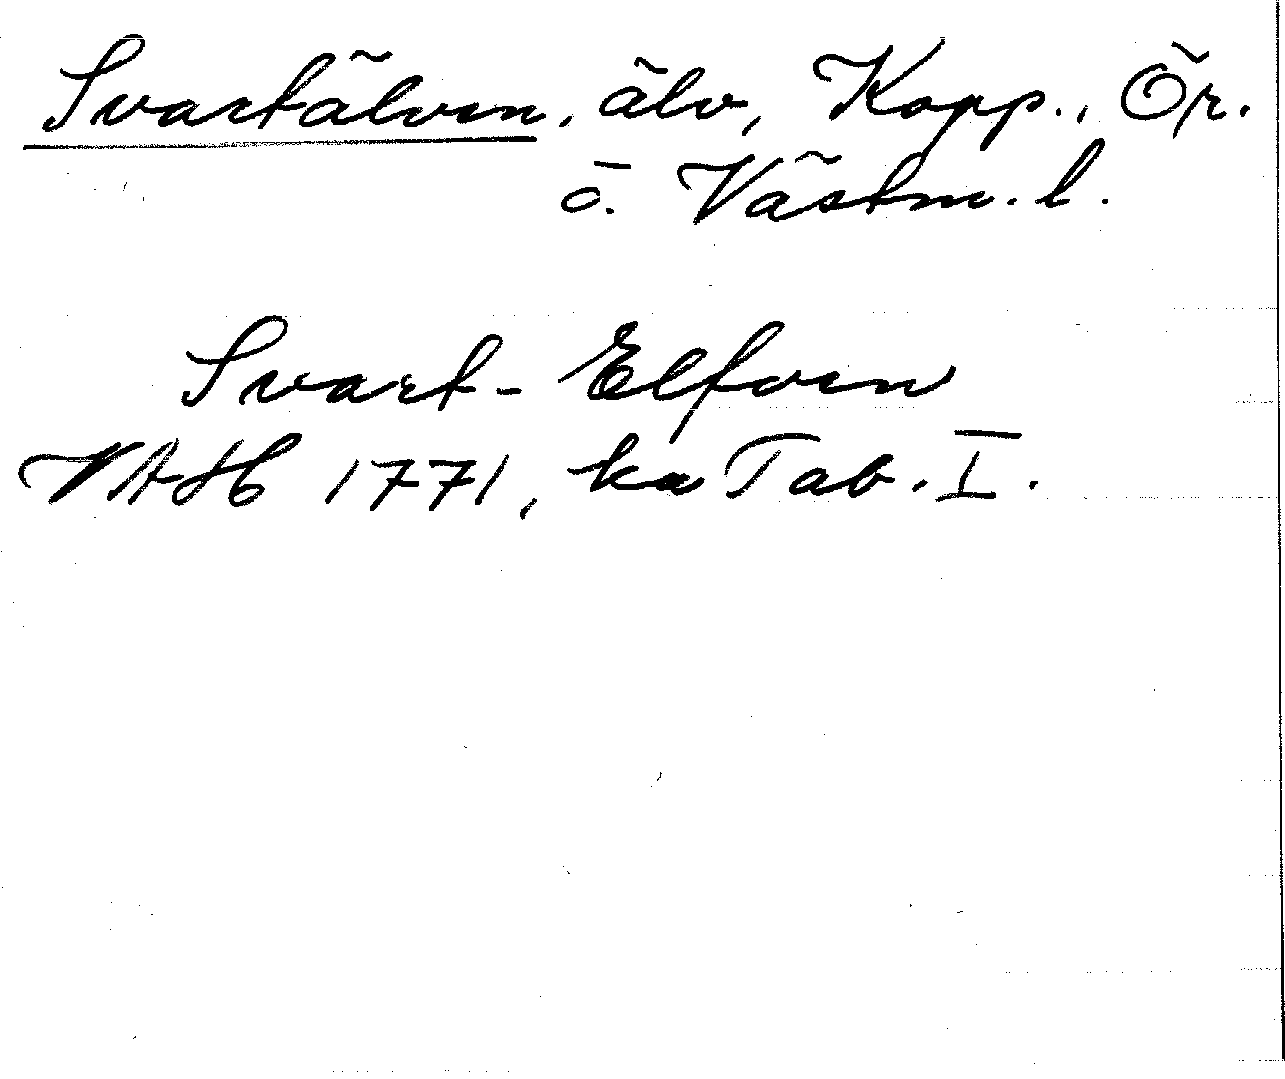 Svartälven, älv, Kopp., Ör.
o. Västm. l.
Svart-Elfven
VAH 1771, ka Tab. I.